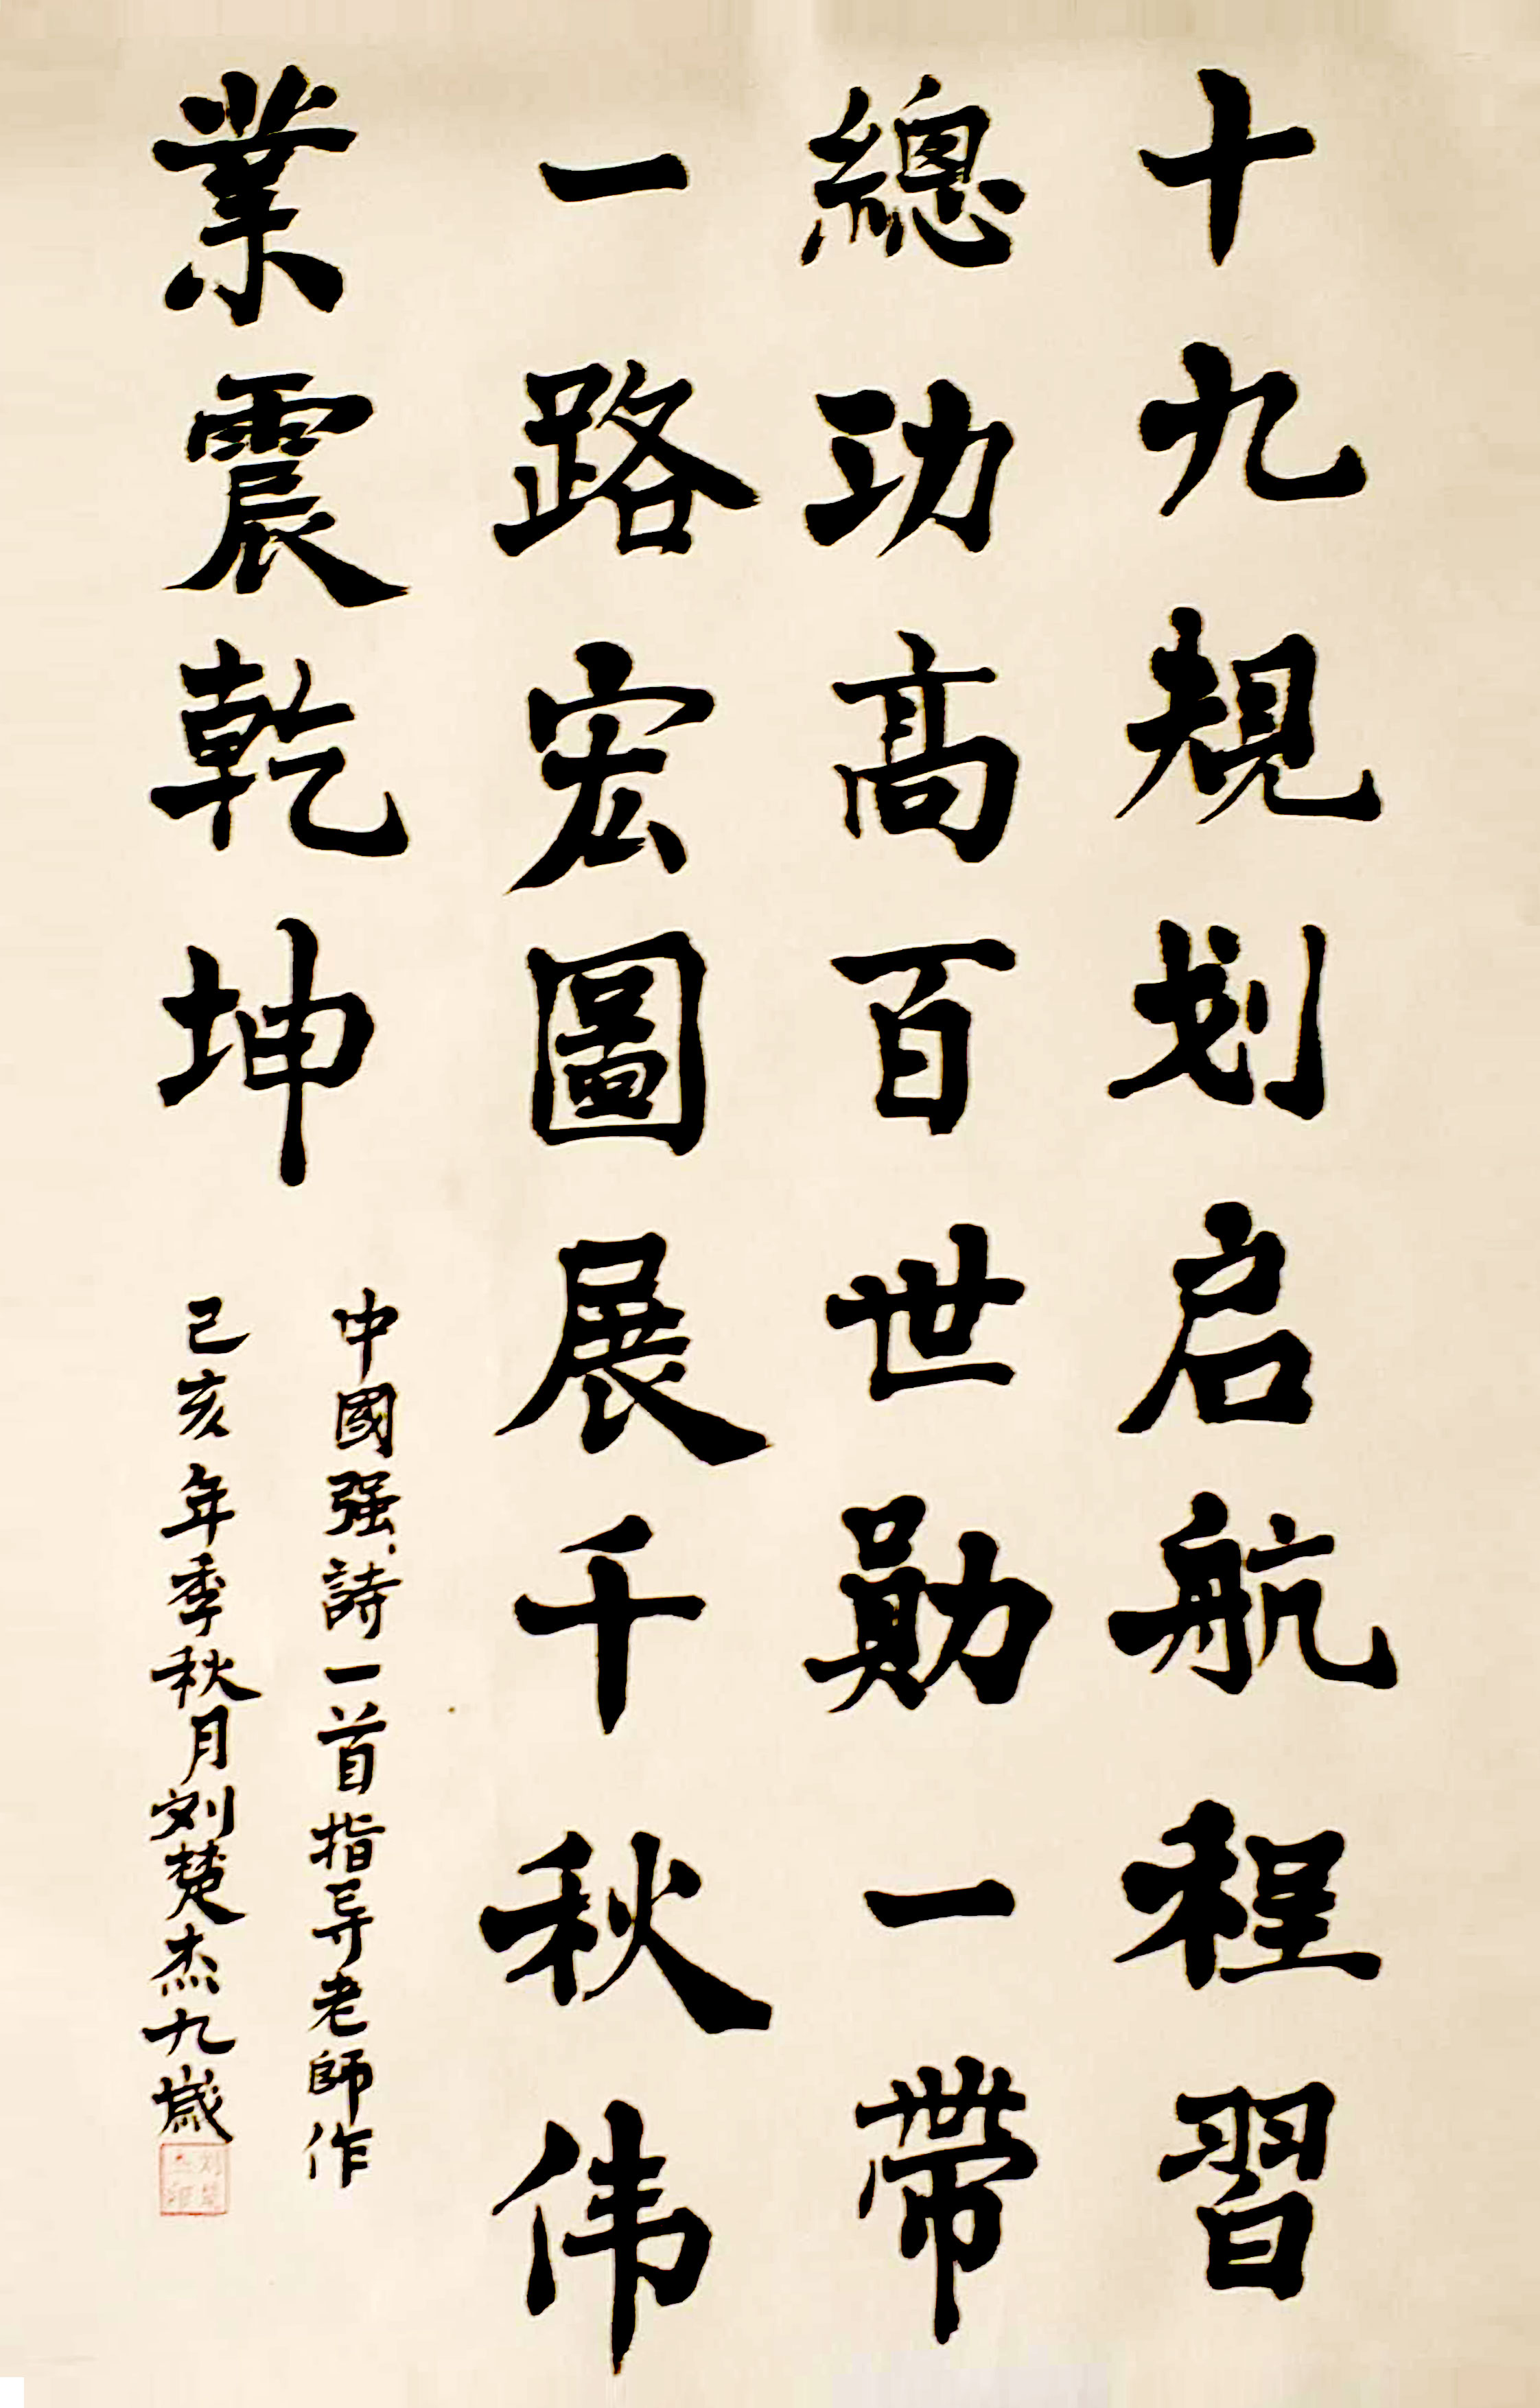 十九規划启航程習
總功高百世勛一帶
一路宏圖展千秋伟
業震乾坤
中國强詩一首指导老師作
己亥年季秋月刘楚杰九歲